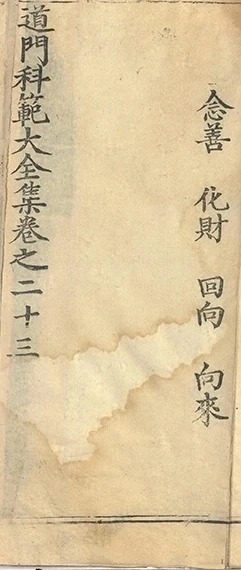 念善 化財 回向 向來
道門科範大全集卷之二十三